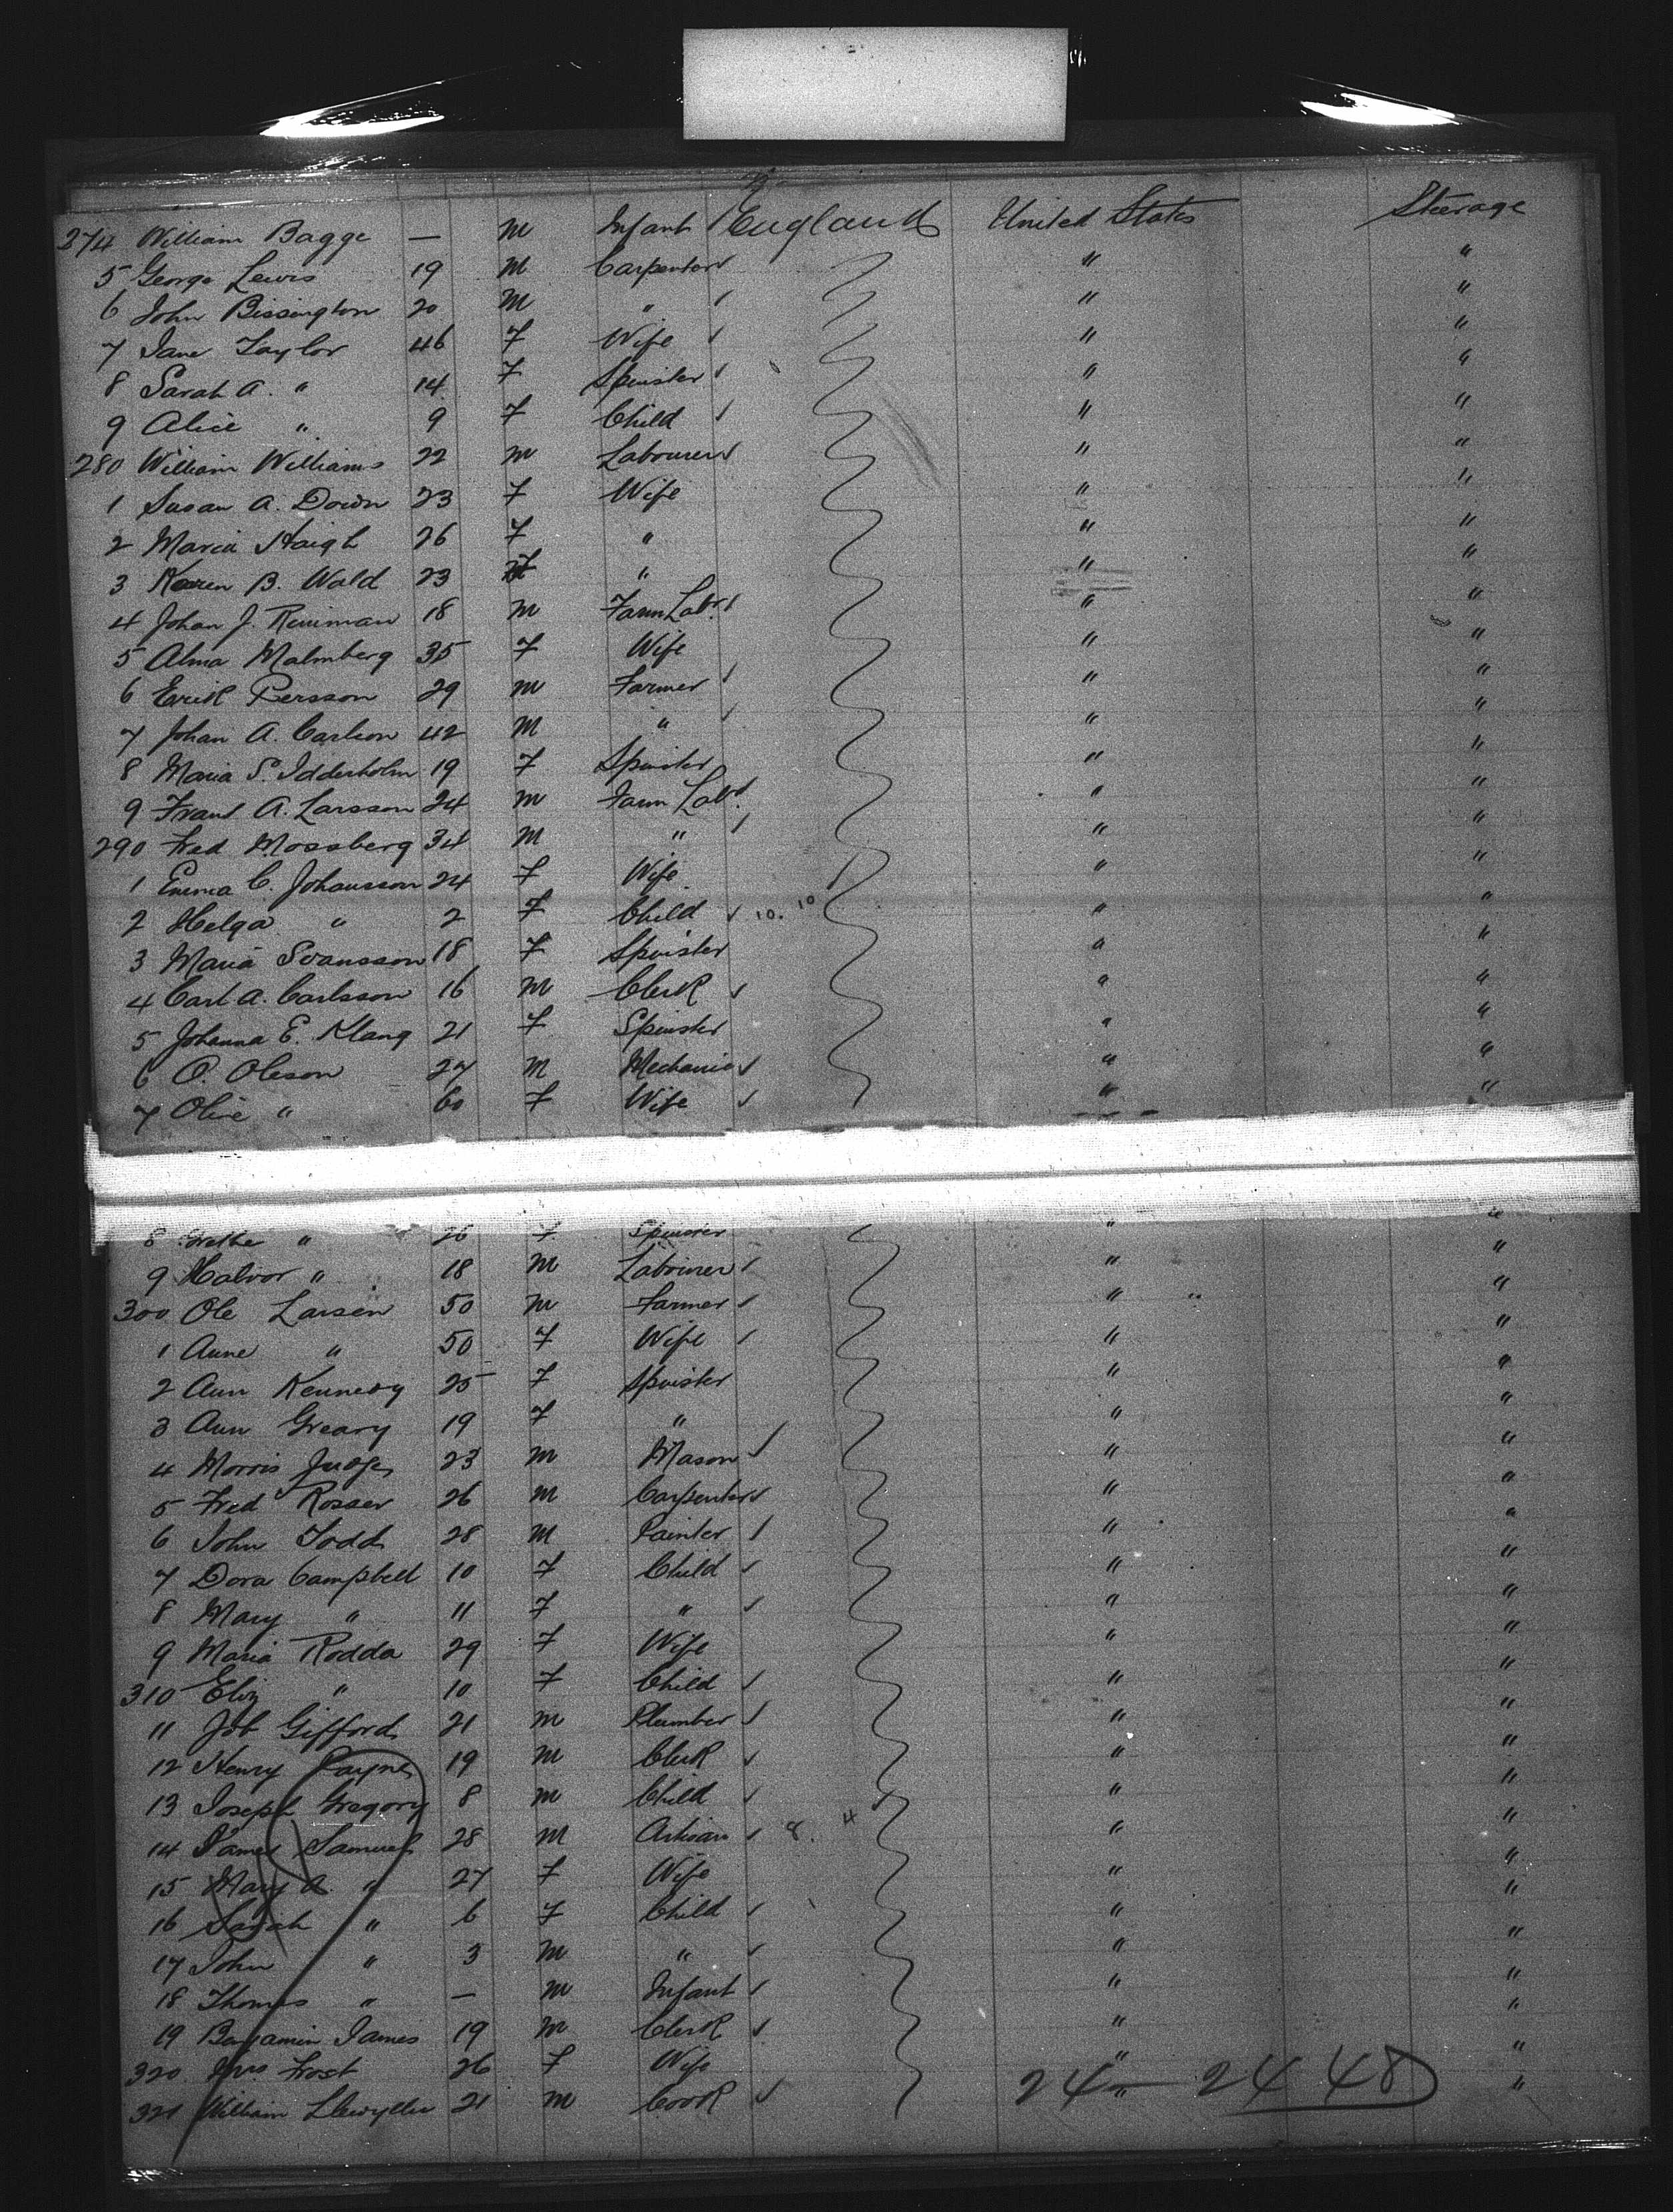 274 William Bagge — M Infant England United States Steerage
5 George Lewis 19 M Carpenter " "
6 John Bissington 20 M " " "
7 Jane Taylor 46 F Wife " "
8 Sarah A. " 14 F Spinster " "
9 Alice " 9 F Child " "
280 William Williams 22 M Labourer " "
1 Susan A. Down 23 F Wife " "
2 Maria Haigh 26 F " " "
3 Karen B. Wald 23 F " " "
4 Johan J. 18 M Farm Labr. " "
5 Alma Malmberg 35 F Wife " "
6 Erik Persson 29 M Farmer " "
7 Johan A. Carlson 42 M " " "
8 Maria S. Idderholm 19 F Spinster " "
9 Frans A. Larsson 24 M Farm Labr. " "
290 Fred Mossberg 34 M " " "
1 Emma C. Johansson 24 F Wife " "
2 Helga " 2 F Child 10. 10 " "
3 Maria Svansson 18 F Spinster " "
4 Carl A. Carlsson 16 M Clerk " "
5 Johanna E. Klang 21 F Spinster " "
6 O. Oleson 27 M Mechanic " "
7 Olive " 60 F Wife " "
8 Grethe " 26 F Spinster " "
9 Halvor " 18 M Labourer " "
300 Ole Larsen 50 M Farmer " "
1 Anne " 50 F Wife " "
2 Ann Kennedy 25 F Spinster " "
3 Ann Greary 19 F " " "
4 Morris Judge 23 M Mason " "
5 Fred Rosser 26 M Carpenter " "
6 John Todd 28 M Painter " "
7 Dora Campbell 10 F Child " "
8 Mary " 11 F " " "
9 Maria Rodda 29 F Wife " "
310 Eliz " 10 F Child " "
11 Job Gifford 21 M Plumber " "
12 Henry Payne 19 M Clerk " "
13 Joseph Gregory 8 M Child " "
14 James Samuel 28 M Artisan 8. 4 " "
15 Mary A. " 27 F Wife " "
16 Sarah " 6 F Child " "
17 John " 3 M " " "
18 Thomas " — M Infant " "
19 Benjamin James 19 M Clerk " "
320 Mrs Frost 26 F Wife " "
321 William Llewyllin 21 M Cook " "
24 — 24 48